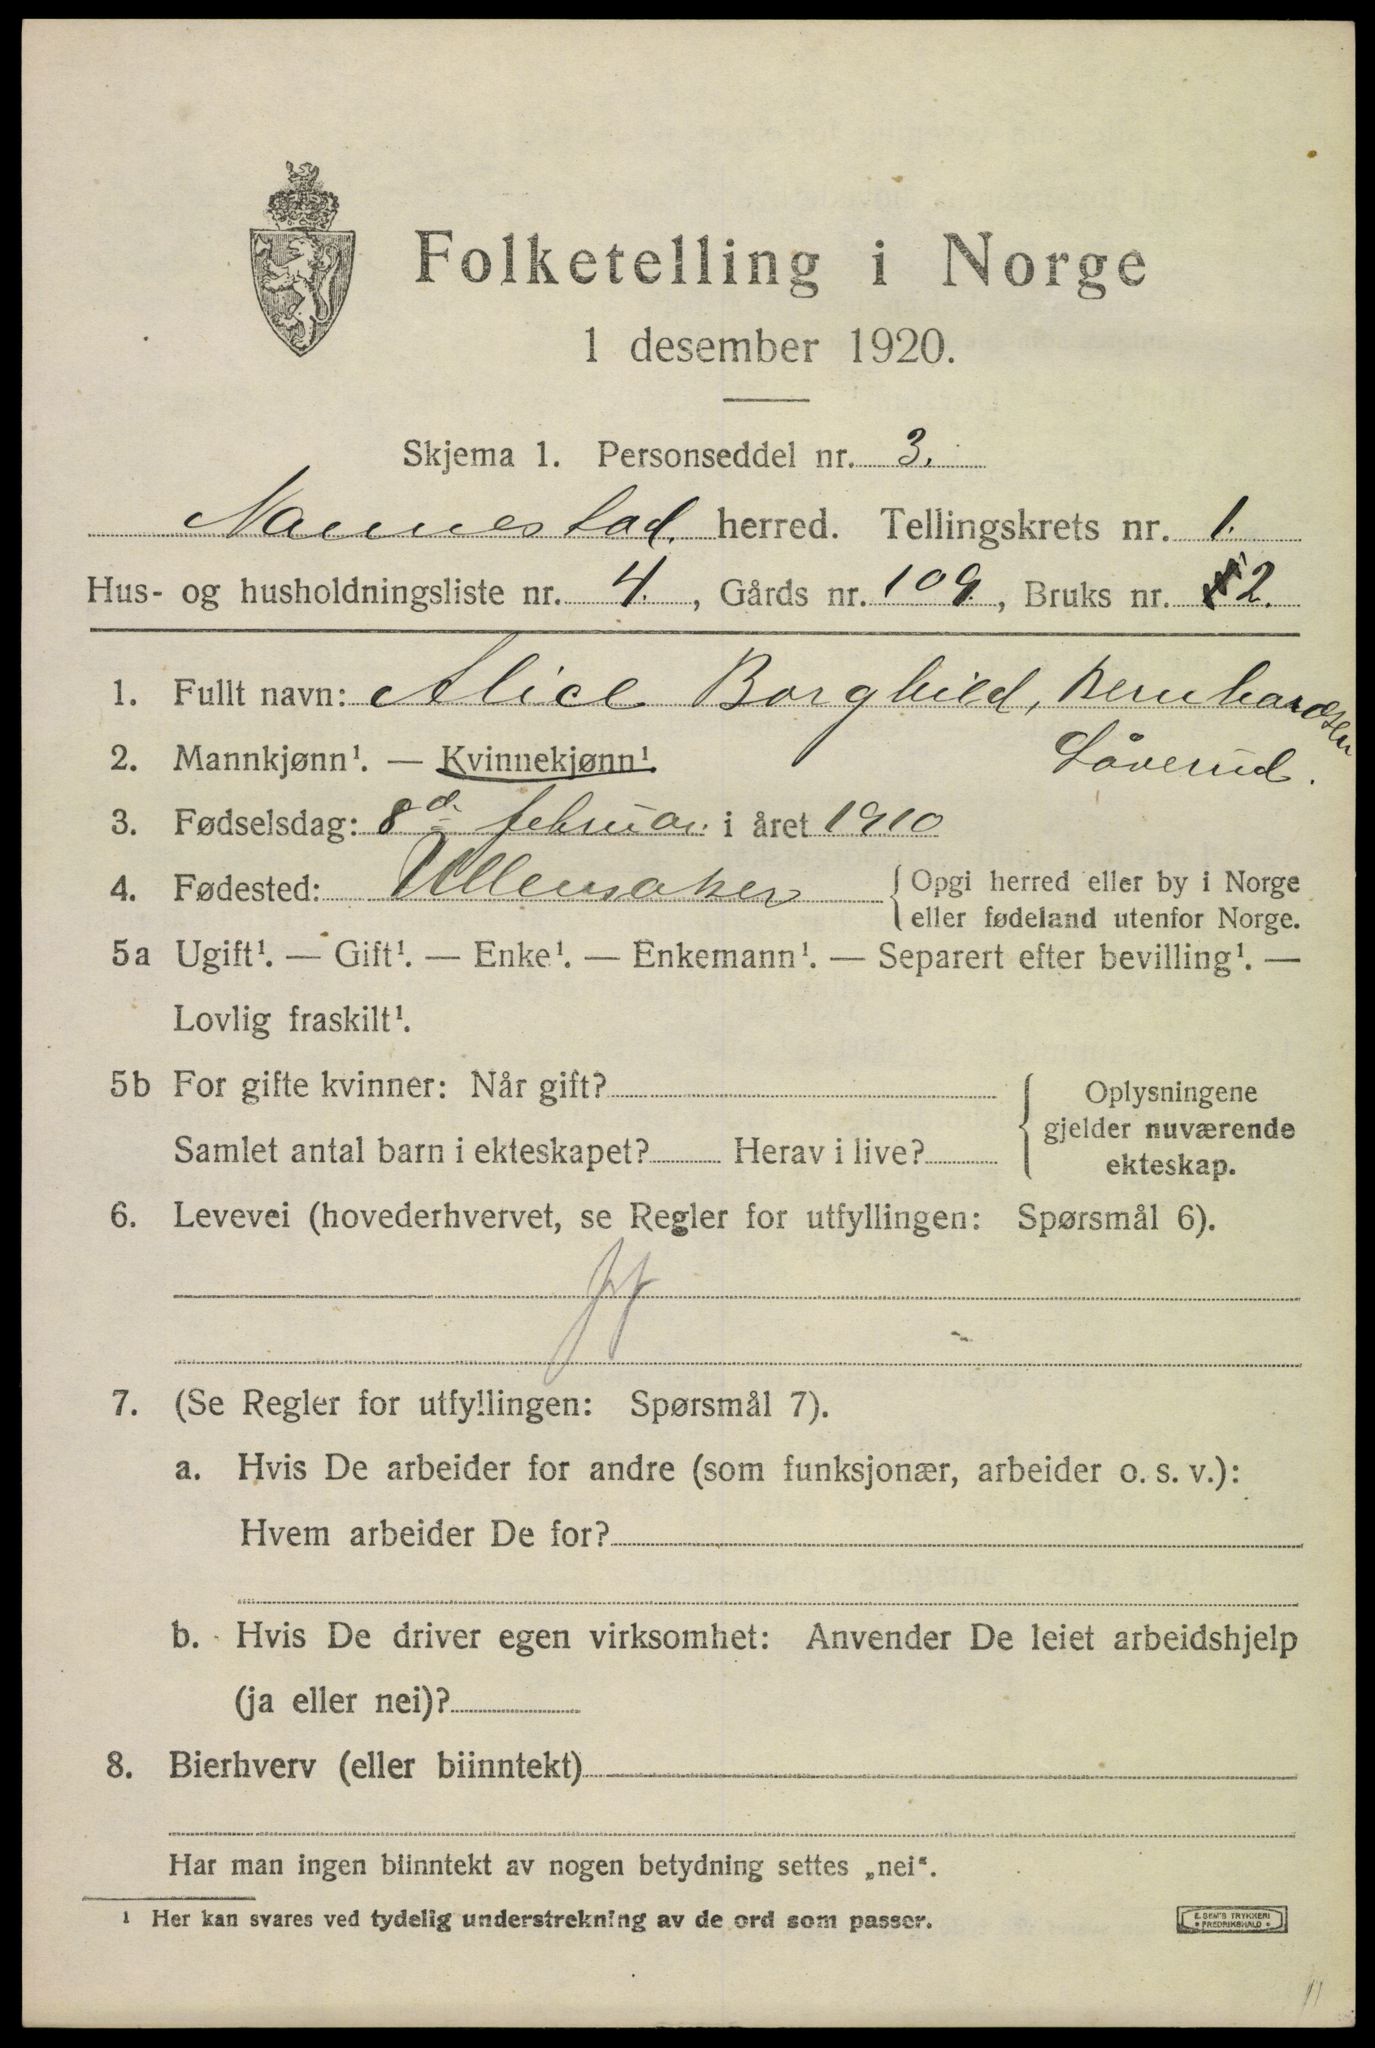 Folketelling i Norge
1 desember 1920.
Skjema 1. Personseddel nr. 3.
Nannestad. herred. Tellingskrets nr. 1.
Hus- og husholdningsliste nr. 4. , Gårds nr. 109 , Bruks nr. 2.
1. Fullt navn: Alice Borghild, Bernhardsen
Löverud.
2. Mannkjønn¹. — Kvinnekjønn¹
3. Fødselsdag: 8d. februar. i året 1910
4. Fødested: Ullensaker { Opgi herred eller by i Norge
eller fødeland utenfor Norge.
5a Ugift¹. — Gift¹. — Enke¹. — Enkemann¹. — Separert efter bevilling¹. —
Lovlig fraskilt¹.
5b For gifte kvinner: Når gift? { Oplysningene
gjelder nuværende
Samlet antal barn i ekteskapet? Herav i live? ekteskap.
6. Levevei (hovederhvervet, se Regler for utfyllingen: Spørsmål 6).
7. (Se Regler for utfyllingen: Spørsmål 7).
a. Hvis De arbeider for andre (som funksjonær, arbeider o. s. v.):
Hvem arbeider De for?
b. Hvis De driver egen virksomhet: Anvender De leiet arbeidshjelp
(ja eller nei)?
8. Bierhverv (eller biinntekt)
Har man ingen biinntekt av nogen betydning settes „nei“.
¹ Her kan svares ved tydelig understrekning av de ord som passer.
E. SEM'S TRYKKERI
FREDRIKSHALD